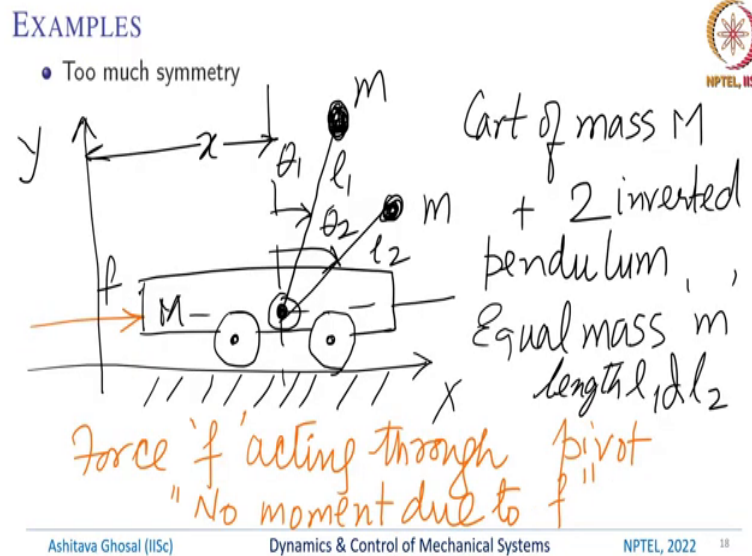 EXAMPLES
• Too much symmetry
NPTEL, IIS
m
y
x
θ1
l1
m
θ2
l2
f
M
X
Cart of mass M
+ 2 inverted
pendulum,
Equal mass m
length l1 & l2
Force 'f' acting through pivot
"No moment due to f"
Ashitava Ghosal (IISc) Dynamics & Control of Mechanical Systems NPTEL, 2022 18